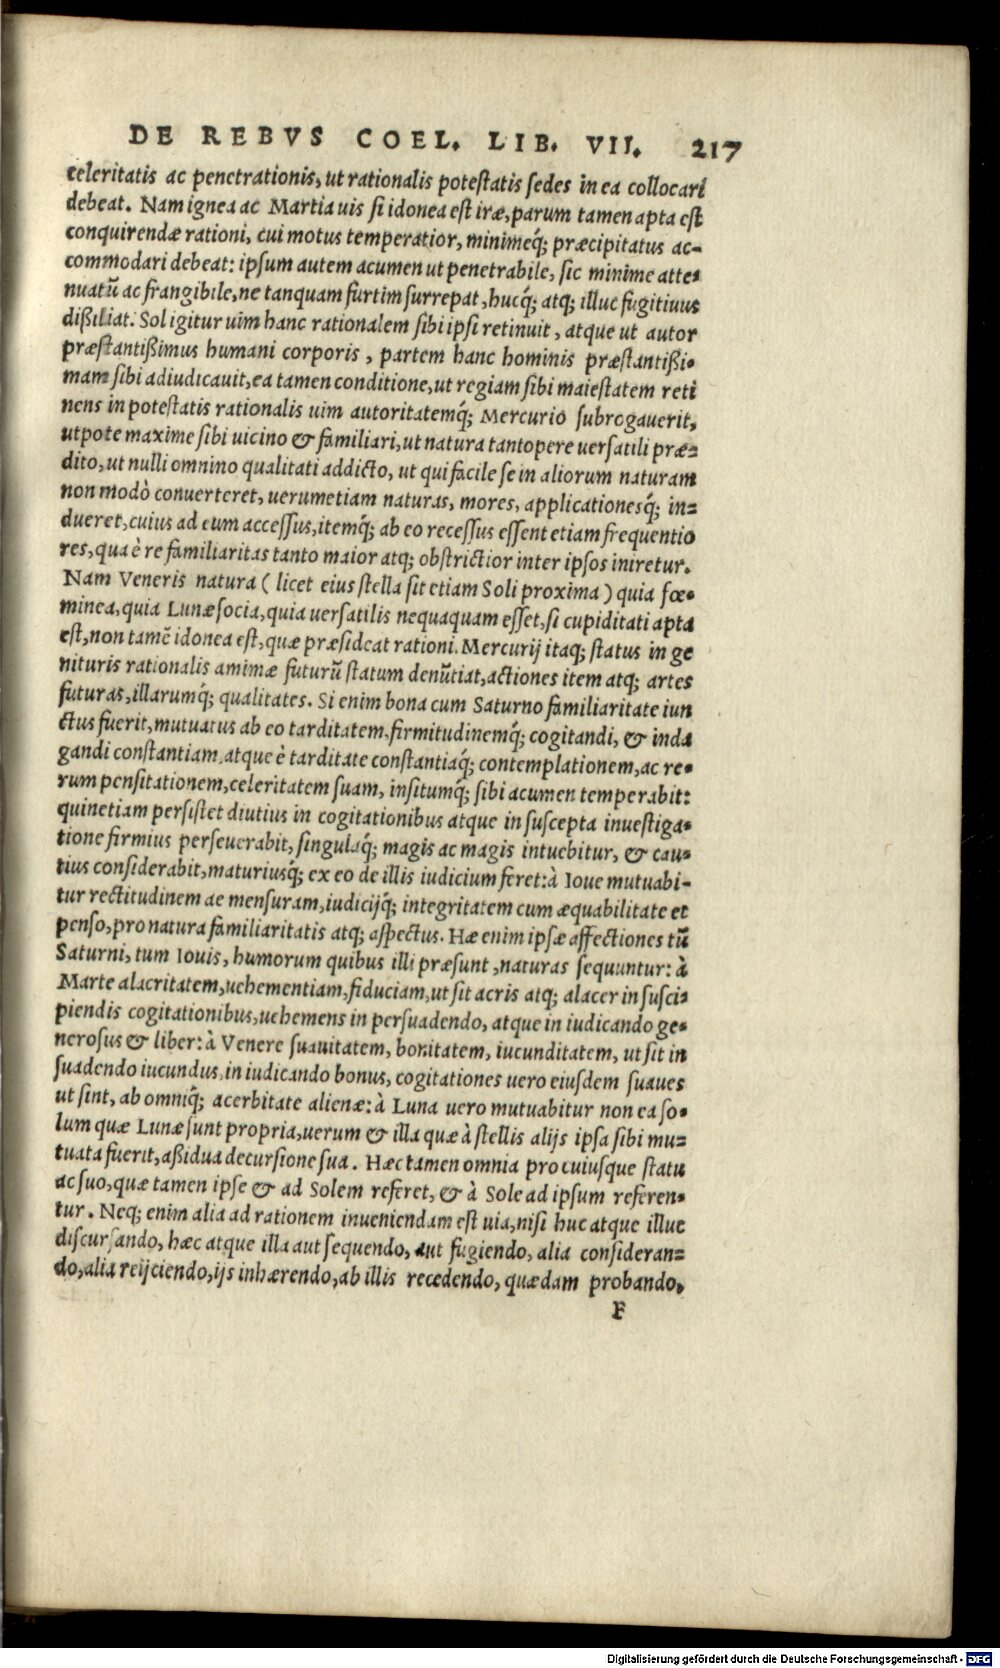 DE REBVS COEL. LIB. VII. 217
celeritatis ac penetrationis, ut rationalis potestatis sedes in ea collocari
debeat. Nam ignea ac Martia uis si idonea est iræ, parum tamen apta est
conquirendæ rationi, cui motus temperatior, minimeq́; præcipitatus ac-
commodari debeat: ipsum autem acumen ut penetrabile, sic minime atte-
nuatũ ac frangibile, ne tanquam furtim surrepat, hucq́; atq; illuc fugitiuus
dißiliat. Sol igitur uim hanc rationalem sibi ipsi retinuit, atque ut autor
præstantißimus humani corporis, partem hanc hominis præstantißi-
mam sibi adiudicauit, ea tamen conditione, ut regiam sibi maiestatem reti
nens in potestatis rationalis uim autoritatemq́; Mercurio subrogauerit,
utpote maxime sibi uicino & familiari, ut natura tantopere uersatili præ-
dito, ut nulli omnino qualitati addicto, ut qui facile se in aliorum naturam
non modò conuerteret, uerumetiam naturas, mores, applicationesq́; in-
dueret, cuius ad eum accessus, itemq́; ab eo recessus essent etiam frequentio
res, qua è re familiaritas tanto maior atq; obstrictior inter ipsos iniretur.
Nam Veneris natura ( licet eius stella sit etiam Soli proxima ) quia fœ-
minea, quia Lunæ socia, quia uersatilis nequaquam esset, si cupiditati apta
est, non tamẽ idonea est, quæ præsideat rationi. Mercurij itaq; status in ge
nituris rationalis amimæ futurũ statum denũtiat, actiones item atq; artes
futuras, illarumq́; qualitates. Si enim bona cum Saturno familiaritate iun
ctus fuerit, mutuatus ab eo tarditatem, firmitudinemq́; cogitandi, & inda
gandi constantiam, atque è tarditate constantiaq́; contemplationem, ac re-
rum pensitationem, celeritatem suam, insitumq́; sibi acumen temperabit:
quinetiam persistet diutius in cogitationibus atque in suscepta inuestiga-
tione firmius perseuerabit, singulaq́; magis ac magis intuebitur, & cau-
tius considerabit, maturiusq́; ex eo de illis iudicium feret: à Ioue mutuabi-
tur rectitudinem ac mensuram, iudicijq́; integritatem cum æquabilitate et
penso, pro natura familiaritatis atq; aspectus. Hæ enim ipsæ affectiones tũ
Saturni, tum Iouis, humorum quibus illi præsunt, naturas sequuntur: à
Marte alacritatem, uehementiam, fiduciam, ut sit acris atq; alacer in susci-
piendis cogitationibus, uehemens in persuadendo, atque in iudicando ge-
nerosus & liber: à Venere suauitatem, bonitatem, iucunditatem, ut sit in
suadendo iucundus, in iudicando bonus, cogitationes uero eiusdem suaues
ut sint, ab omniq́; acerbitate alienæ: à Luna uero mutuabitur non ea so-
lum quæ Lunæ sunt propria, uerum & illa quæ à stellis alijs ipsa sibi mu-
tuata fuerit, aßidua decursione sua. Hæc tamen omnia pro cuiusque statu
ac suo, quæ tamen ipse & ad Solem referet, & à Sole ad ipsum referen-
tur. Neq; enim alia ad rationem inueniendam est uia, nisi huc atque illuc
discursando, hæc atque illa aut sequendo, aut fugiendo, alia consideran-
do, alia reijciendo, ijs inhærendo, ab illis recedendo, quædam probando,
F
Digitalisierung gefördert durch die Deutsche Forschungsgemeinschaft - DFG